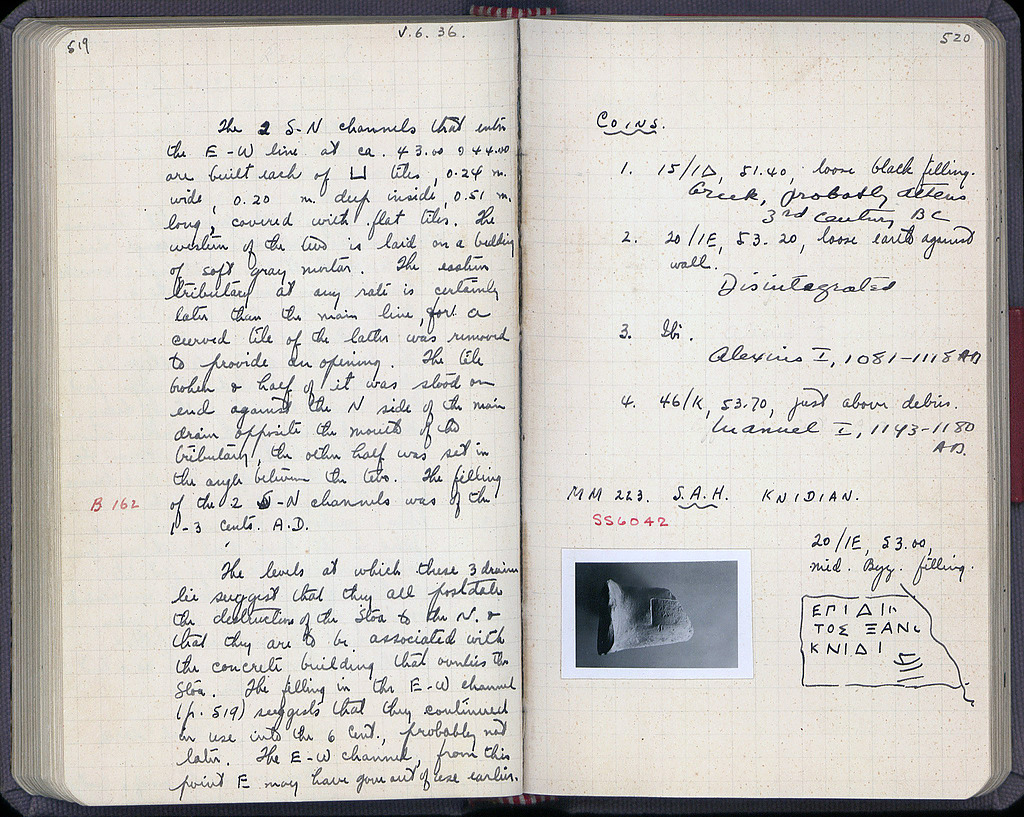 519
V. 6. 36.
The 2 S-N channels that enter
the E-W line at ca. 43.00 & 44.00
are built each of ⊔ tiles, 0.24 m.
wide, 0.20 m. deep inside, 0.51 m.
long, covered with flat tiles. The
western of the two is laid on a bedding
of soft gray mortar. The eastern
tributary at any rate is certainly
later than the main line, for a
curved tile of the latter was removed
to provide an opening. The tile
broken & half of it was stood on
end against the N side of the main
drain opposite the mouth of the
tributary, the other half was set in
the angle between the two. The filling
B 162
of the 2 S-N channels was of the
1-3 cents. A.D.
The levels at which these 3 drains
lie suggest that they all postdate
the destruction of the Stoa to the N. &
that they are to be associated with
the concrete building that overlies the
Stoa. The filling in the E-W channel
(p. 519) suggests that they continued
in use into the 6 cent., probably not
later. The E-W channel, from this
point E may have gone out of use earlier.
520
COINS.
1. 15/ΙΔ, 51.40, loose black filling.
Greek, probably Athens
3rd century BC
2. 20/ΙΕ, 53.20, loose earth against
wall.
Disintegrated
3. Ibi.
Alexius I, 1081-1118 AD
4. 46/Κ, 53.70, just above debris.
Manuel I, 1143-1180
AD.
MM 223. S.A.H. KNIDIAN.
SS6042
20/ΙΕ, 53.00,
mid. Byz. filling.
ΕΠΙΔΙΚ
ΤΟΣ ΞΑΝ
ΚΝΙΔΙ